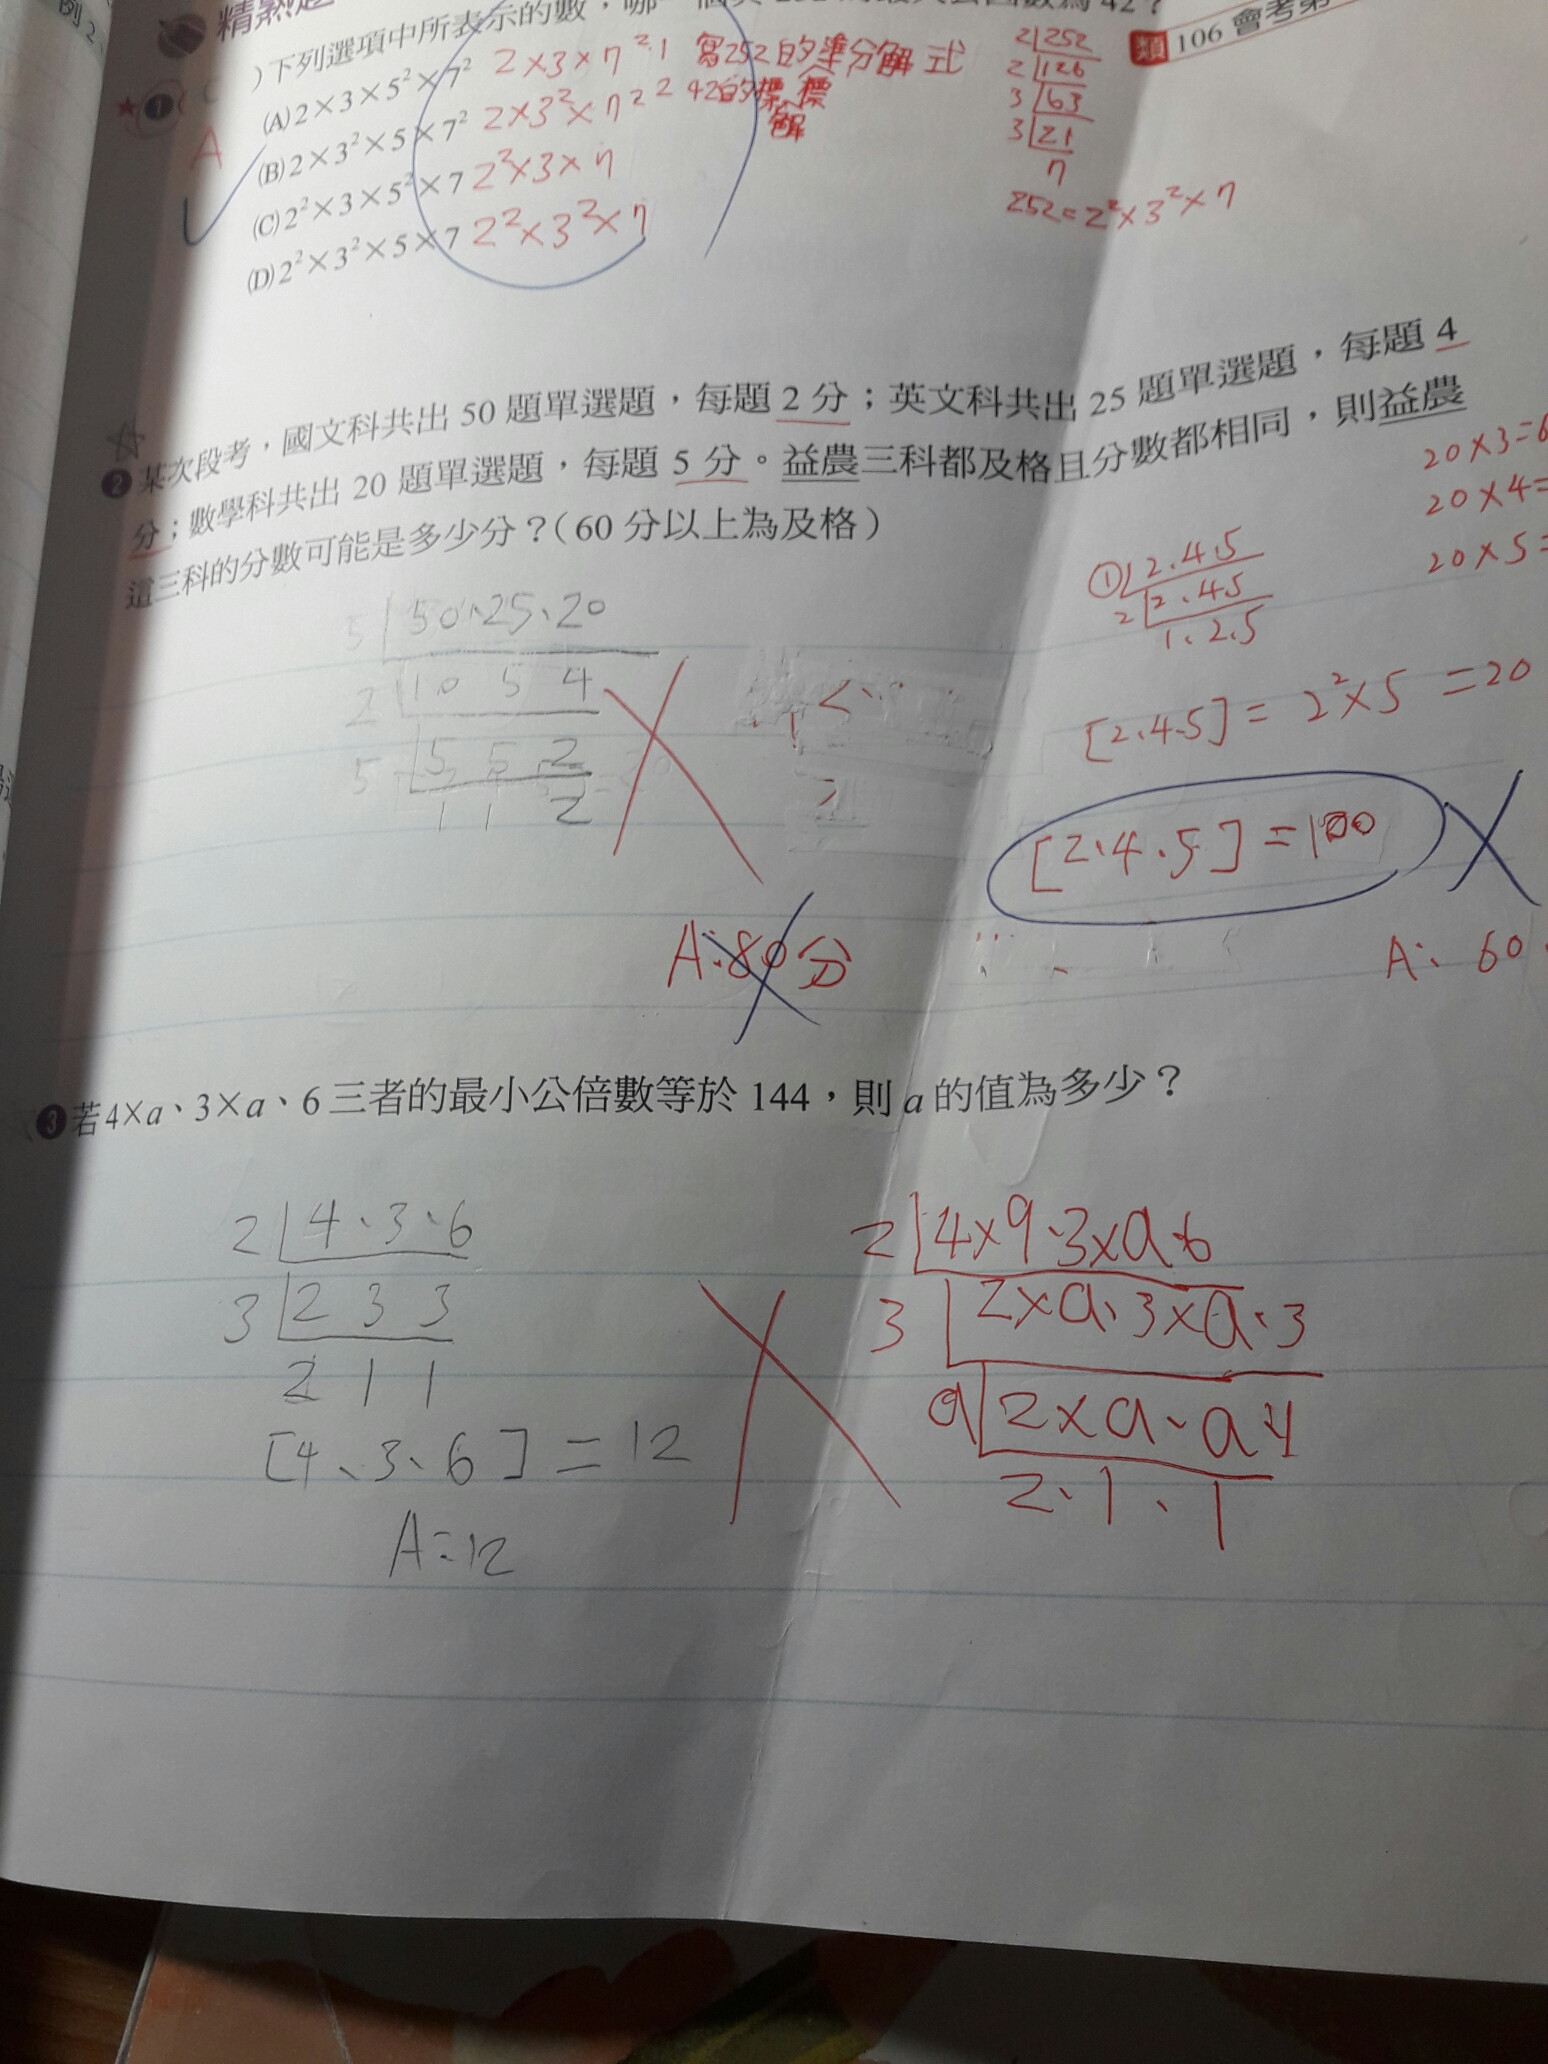 例2
精熟題
類 106 會考第
)下列選項中所表示的數,哪一個與 252 的最大公因數為 42?
★ 1 (
A
(A) 2×3×5²×7² 2×3×7²·1
(B) 2×3²×5×7² 2×3²×7²
(C) 2²×3×5²×7 2²×3×7
(D) 2²×3²×5×7 2²×3²×7
寫252的準分解式
42的標標
解
2 252
2 126
3 63
3 21
7
252=2²×3²×7
2 某次段考,國文科共出 50 題單選題,每題 2 分;英文科共出 25 題單選題,每題 4
分;數學科共出 20 題單選題,每題 5 分。益農三科都及格且分數都相同,則益農
這三科的分數可能是多少分?(60 分以上為及格)
5 50、25、20
2 10 5 4
5 5 5 2
1 1 2
A:80分
20×3=6
20×4=
20×5=
① 2.4.5
2 2.4.5
1、2.5
[2.4.5]=2²×5=20
[2、4、5]=100
A: 60
3 若4×a、3×a、6 三者的最小公倍數等於 144,則 a 的值為多少?
2 4、3、6
3 2 3 3
2 1 1
[4、3、6]=12
A:12
2 4×9·3×a·6
3 2×a、3×a·3
a 2×a、a·1
2·1、1